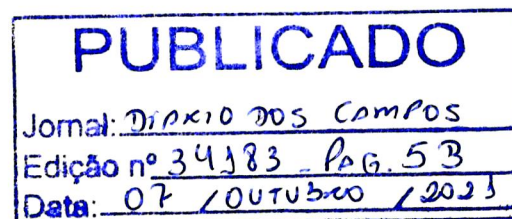 PUBLICADO
Jornal: DIARIO DOS CAMPOS
Edição nº 34183 - PAG. 5B
Data: 07 / OUTUBRO / 2021